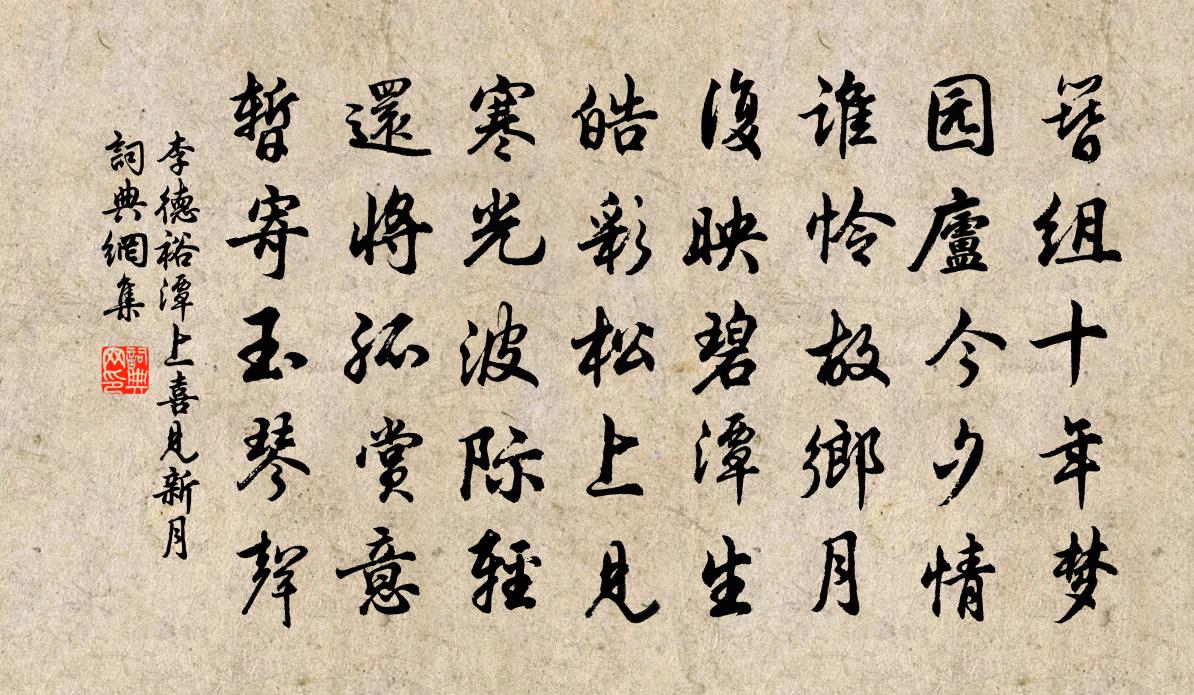 簪组十年梦
园廬今夕情
谁怜故鄉月
復映碧潭生
皓彩松上見
寒光波际輕
還將孤賞意
暫寄玉琴聲
李德裕潭上喜見新月
詞典網集
詞典网印